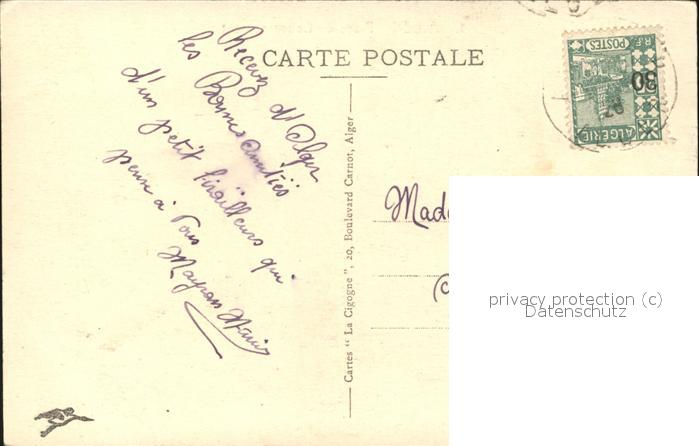 CARTE POSTALE
Recevez d'Alger
les Bonnes Amitiés
d'un petit tirailleurs qui
pense à Vous
Cartes " La Cigogne ", 20, Boulevard Carnot, Alger
R.F. POSTES
30
ALGERIE
Mad
privacy protection (c)
Datenschutz